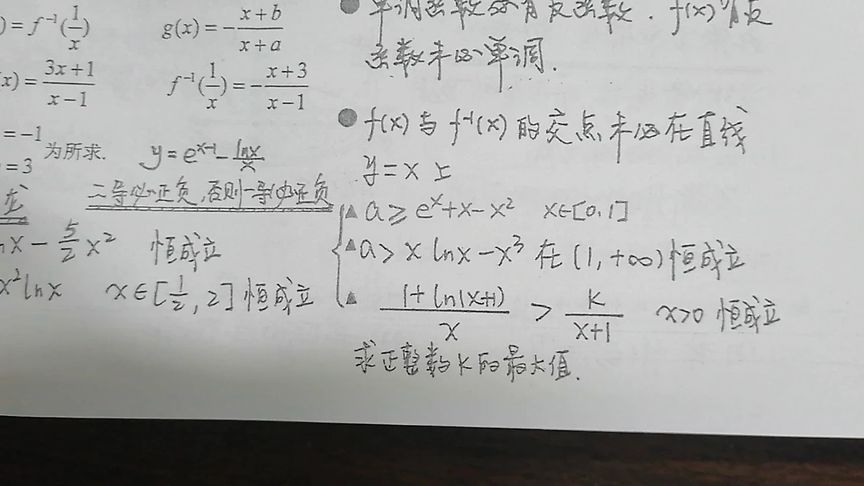 ) = f⁻¹(1/x)
g(x) = -(x+b)/(x+a)
x) = (3x+1)/(x-1)
f⁻¹(1/x) = -(x+3)/(x-1)
= -1
= 3
为所求.
y = e^(x-1) - lnx/x
二导必正负,否则一导必正负
nx - 5/2 x² 恒成立
x² lnx x∈[1/2, 2] 恒成立
单调函数必有反函数. f(x)有反
函数未必单调.
f(x) 与 f⁻¹(x) 的交点未必在直线
y = x 上
▲ a ≥ e^x + x - x² x∈[0,1]
▲ a > x lnx - x³ 在 (1, +∞) 恒成立
▲ (1 + ln(x+1))/x > k/(x+1) x>0 恒成立
求正整数 k 的最大值.